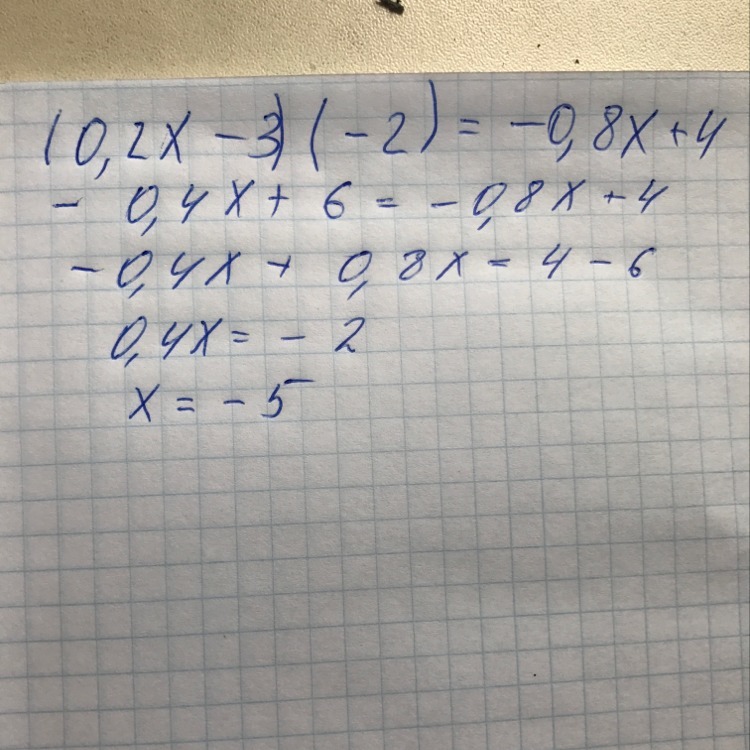 (0,2x - 3) (-2) = -0,8x + 4
- 0,4x + 6 = -0,8x + 4
-0,4x + 0,8x = 4 - 6
0,4x = - 2
x = - 5